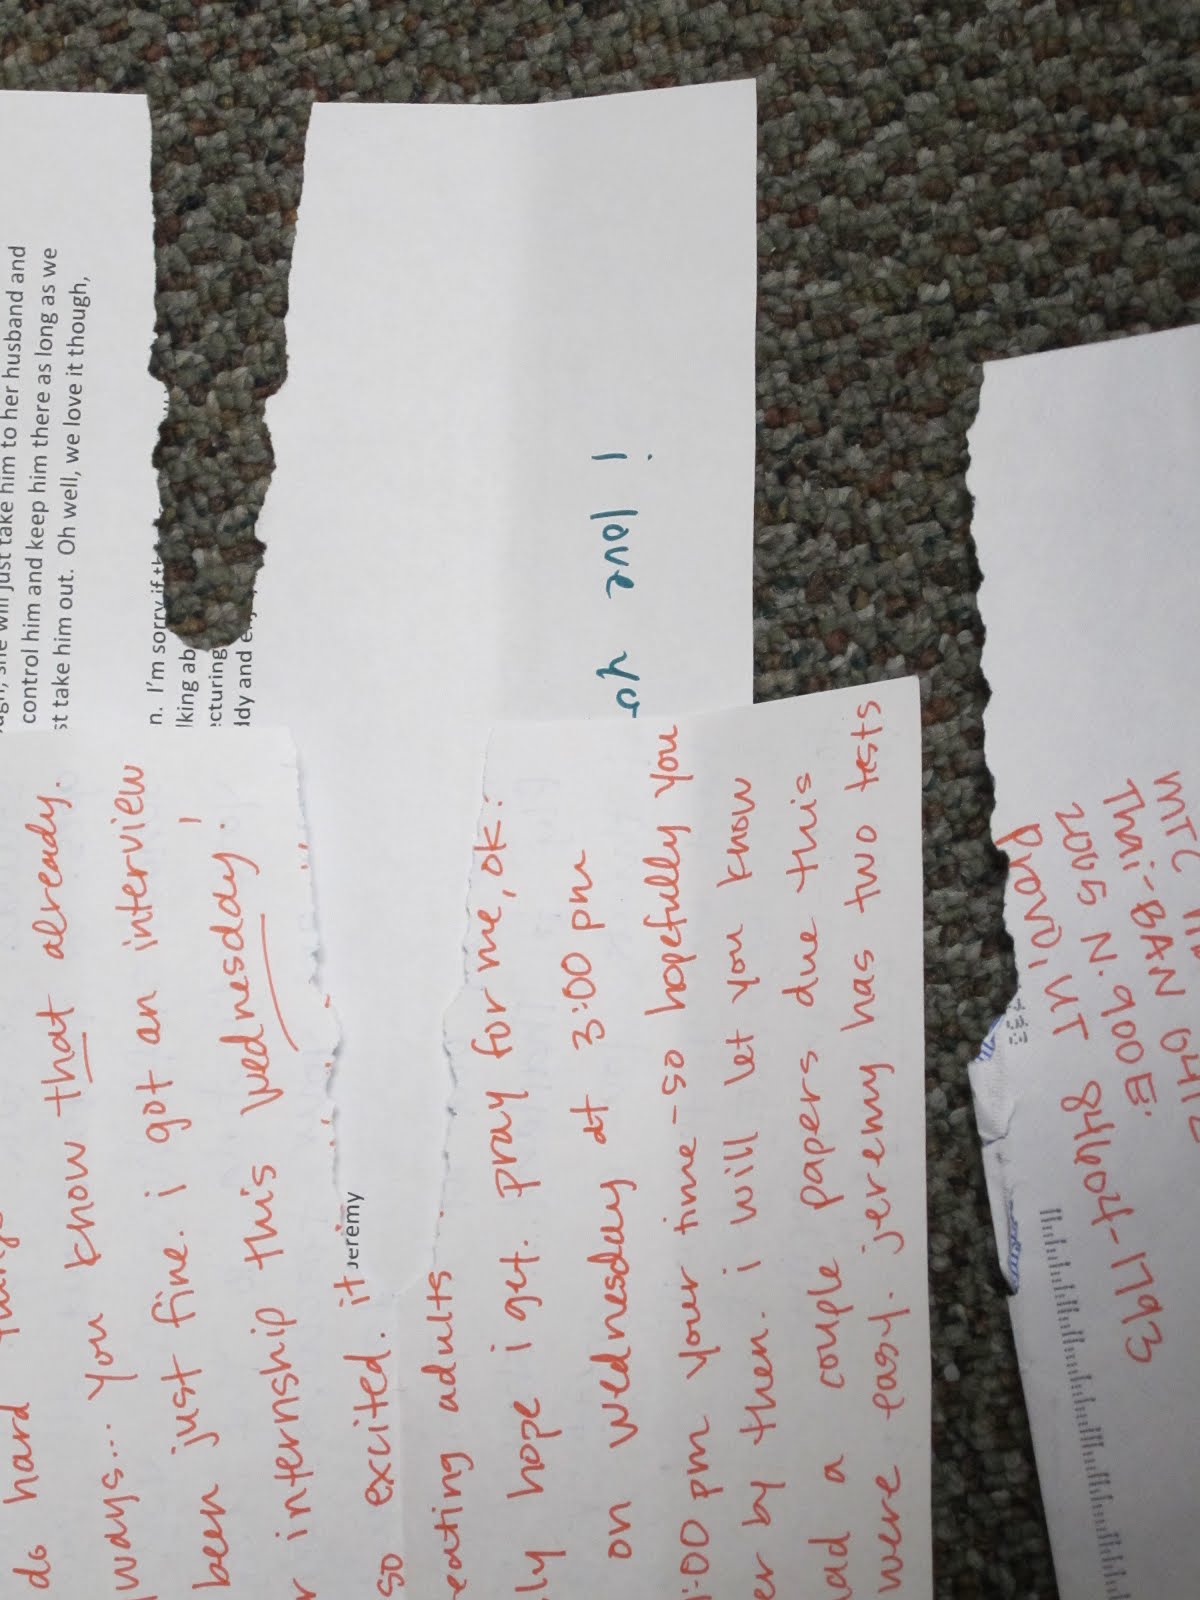 she will just take him to her husband and
control him and keep him there as long as we
st take him out. Oh well, we love it though,
n. I'm sorry if th
lking ab
ecturing
ddy and
Jeremy
i love yo
do hard
ways... you know that already.
been just fine. i got an interview
r internship this wednesday!
so excited. it
eating adults
ly hope i get. pray for me, ok?
on wednesday at 3:00 pm
:00 pm your time - so hopefully you
er by then. i will let you know
ad a couple papers due this
were easy. jeremy has two tests